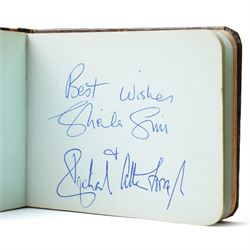 Best Wishes
Sheila Sim
+
Richard Attenborough